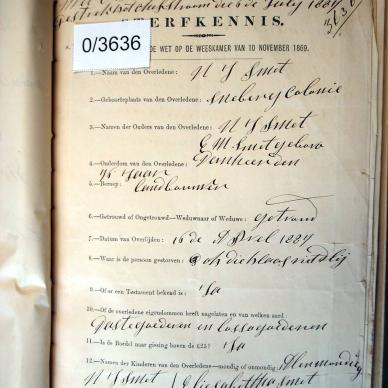 Potchefstroom die 6 de July 1887
STERFKENNIS.
0/3636
DE WET OP DE WEESKAMER VAN 10 NOVEMBER 1869.
1.—Naam van den Overledene: N J Smit
2.—Geboorteplaats van den Overledene: Colonie
3.—Namen der Ouders van den Overledene: N J Smit
E M Smit gebore
4.—Ouderdom van den Overledene: van Heerden
jaar
5.—Beroep: Landbouwer
6.—Getrouwd of Ongetrouwd—Weduwnaar of Weduwe: getroud
7.—Datum van Overlijden: 16 de April 1887
8.—Waar is de persoon gestorven: op die plaas
9.—Of er een Testament bekend is: Ja
10.—Of de overledene eigendommen heeft nagelaten en van welken aard:
Vastegoederen en lossegoederen
11.—Is de Boedel naar gissing boven de £25? Ja
12.—Namen der Kinderen van den Overledene—mondig of onmondig: Allen mondig
N J Smit Elizabeth Ma Smit